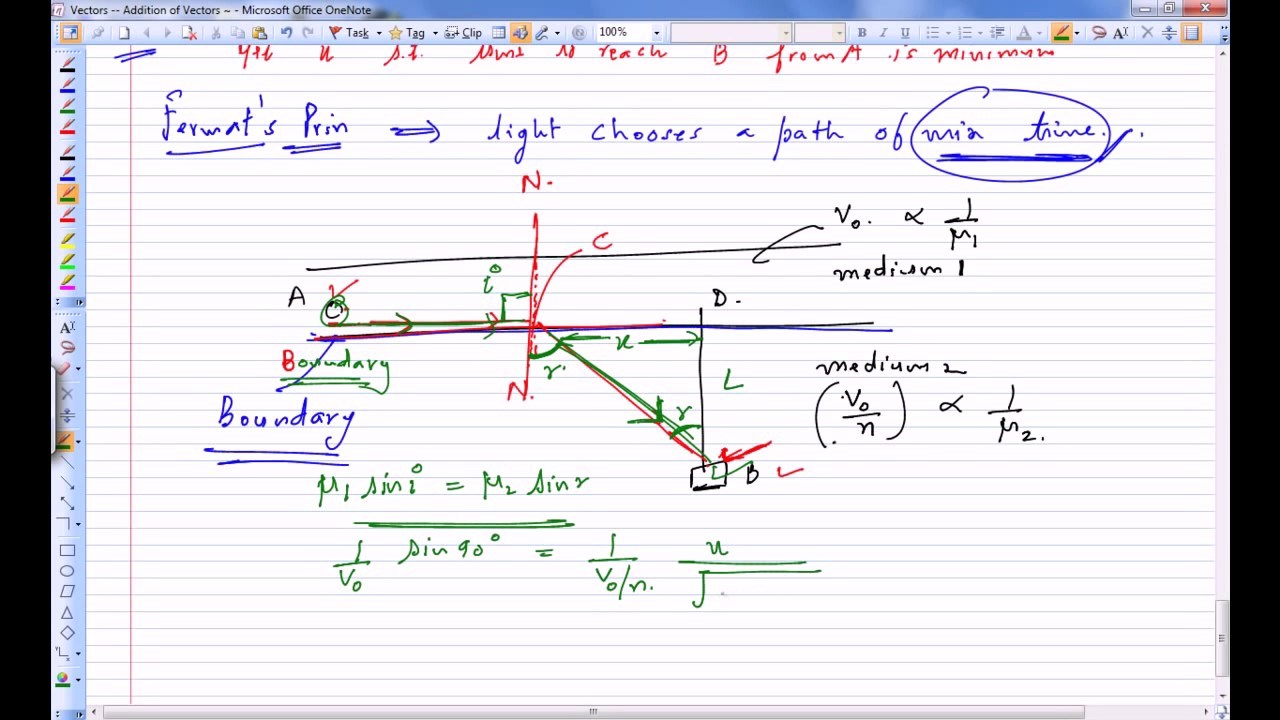 Vectors -- Addition of Vectors ~ - Microsoft Office OneNote
Task Tag Clip 100% B I U A
reach B from A is minimum
Fermat's Prin ⟹ light chooses a path of min time.
N.
V₀. ∝ 1/μ₁
C
medium 1
i°
A
D.
x
Boundary
r.
medium 2
L
(V₀/n) ∝ 1/μ₂.
N.
Boundary
r
B ✓
μ₁ sin i° = μ₂ sin r
1/V₀ sin 90° = 1/(V₀/n). x/√